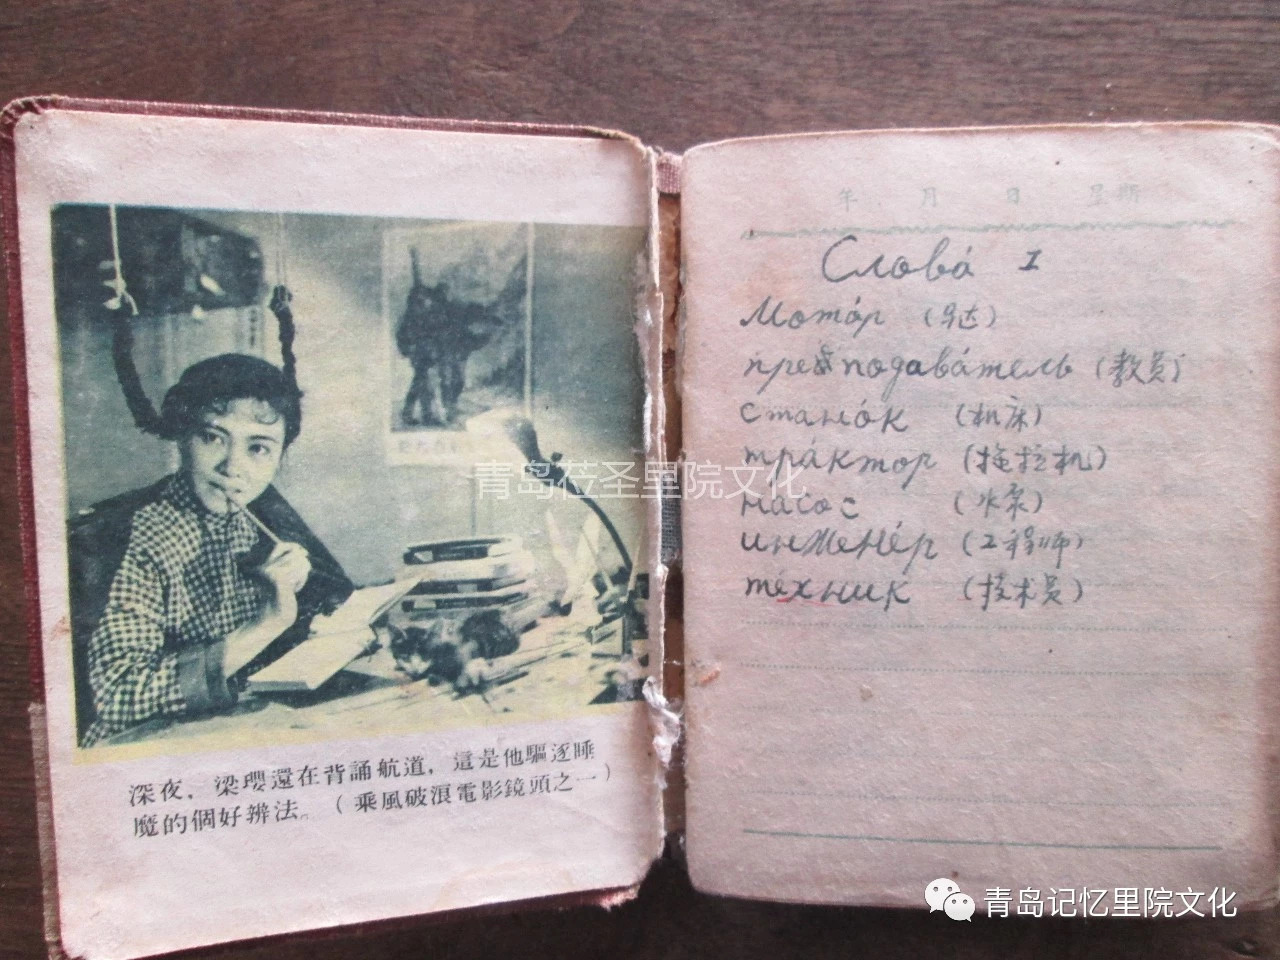 深夜，梁璎還在背誦航道，這是他驅逐睡
魔的個好辨法。（乘風破浪電影鏡頭之一）
年 月 日 星期
Слова́ I
Мото́р （马达）
преподава́тель （教员）
стано́к （机床）
тра́ктор （拖拉机）
насо́с （水泵）
инжене́р （工程师）
те́хник （技术员）
青岛莅圣里院文化
青岛记忆里院文化